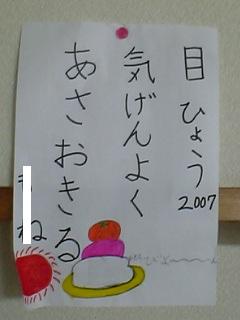 目ひょう
2007
気げんよく
あさおきる